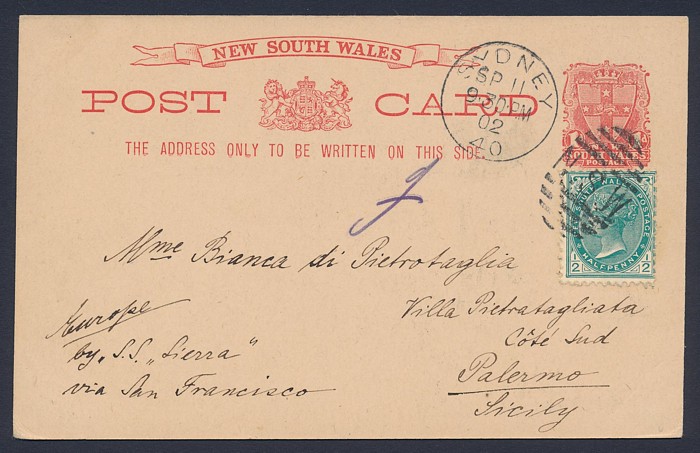 NEW SOUTH WALES
POST CARD
THE ADDRESS ONLY TO BE WRITTEN ON THIS SIDE
SYDNEY
SP 11
9-30PM
02
40
POSTAGE
HALFPENNY
1/2 1/2
Mme Bianca di Pietrotaglia
Villa Pietratagliata
Côté Sud
Palermo
Sicily
Europe
by. S.S. „Sierra"
via San Francisco